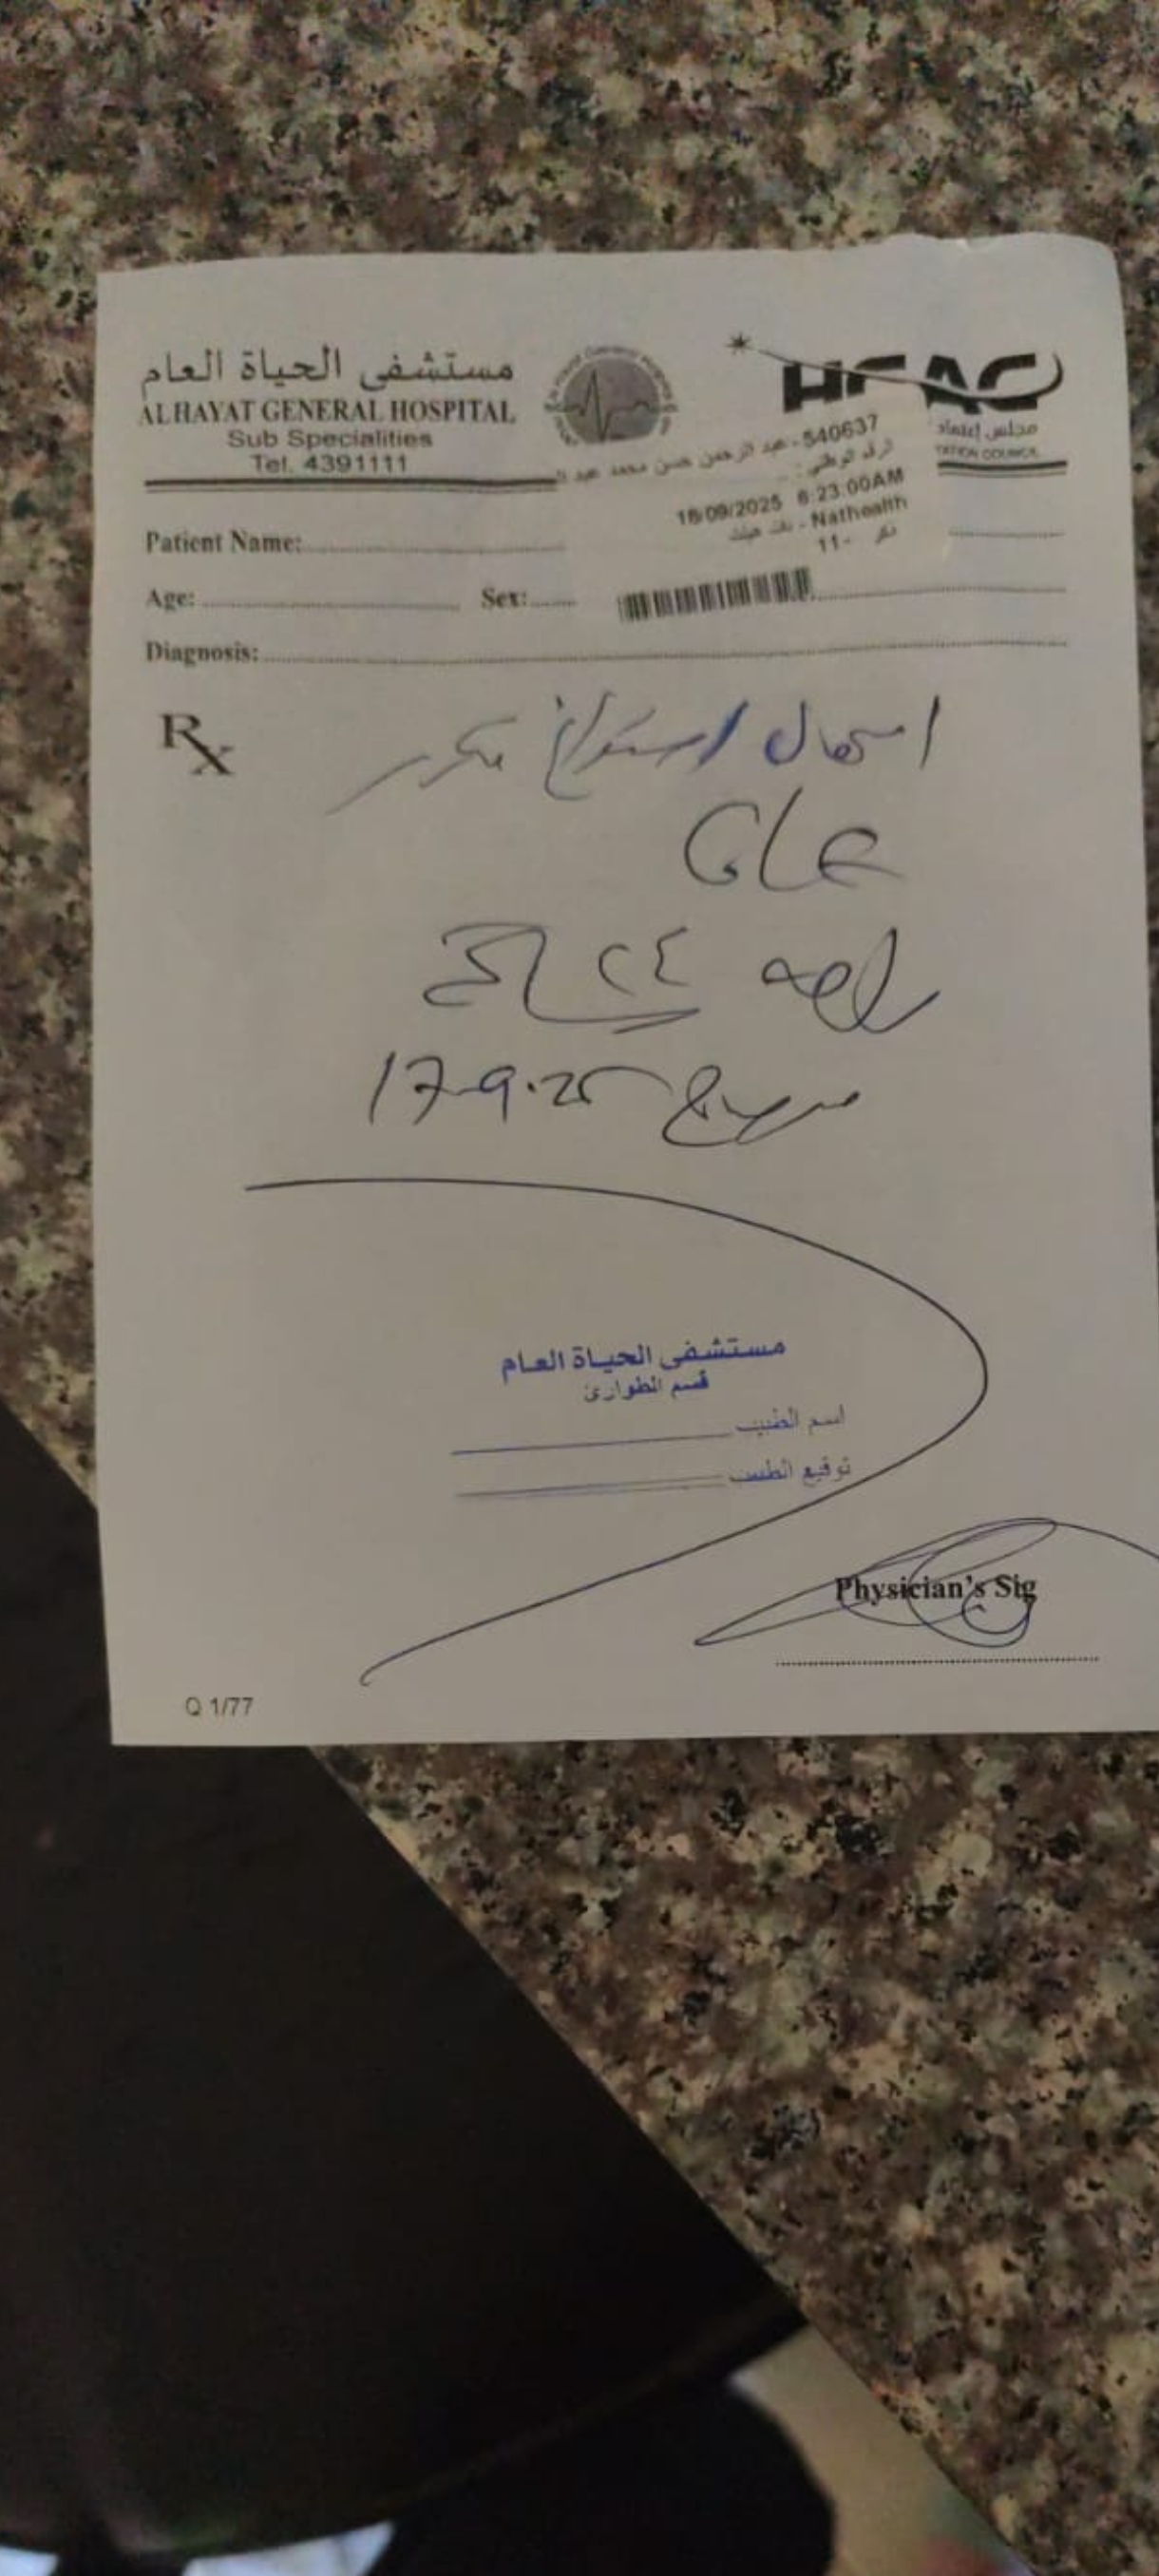 مستشفى الحياة العام
ALHAYAT GENERAL HOSPITAL
Sub Specialities
Tel. 4391111
HCAC
مجلس إعتماد
TATION COUNCIL
540637 - عبد الرحمن حسن محمد عبد
الرقم الوطني :
18/09/2025 6:23:00AM
Nathealth - نات هيلث
ذكر - 11
Patient Name:
Age: Sex:
Diagnosis:
Rx
اسهال استفراغ متكرر
راحة ٢٤
17-9-25
مستشفى الحياة العام
قسم الطوارئ
اسم الطبيب
توقيع الطبيب
Physician's Sig
Q 1/77